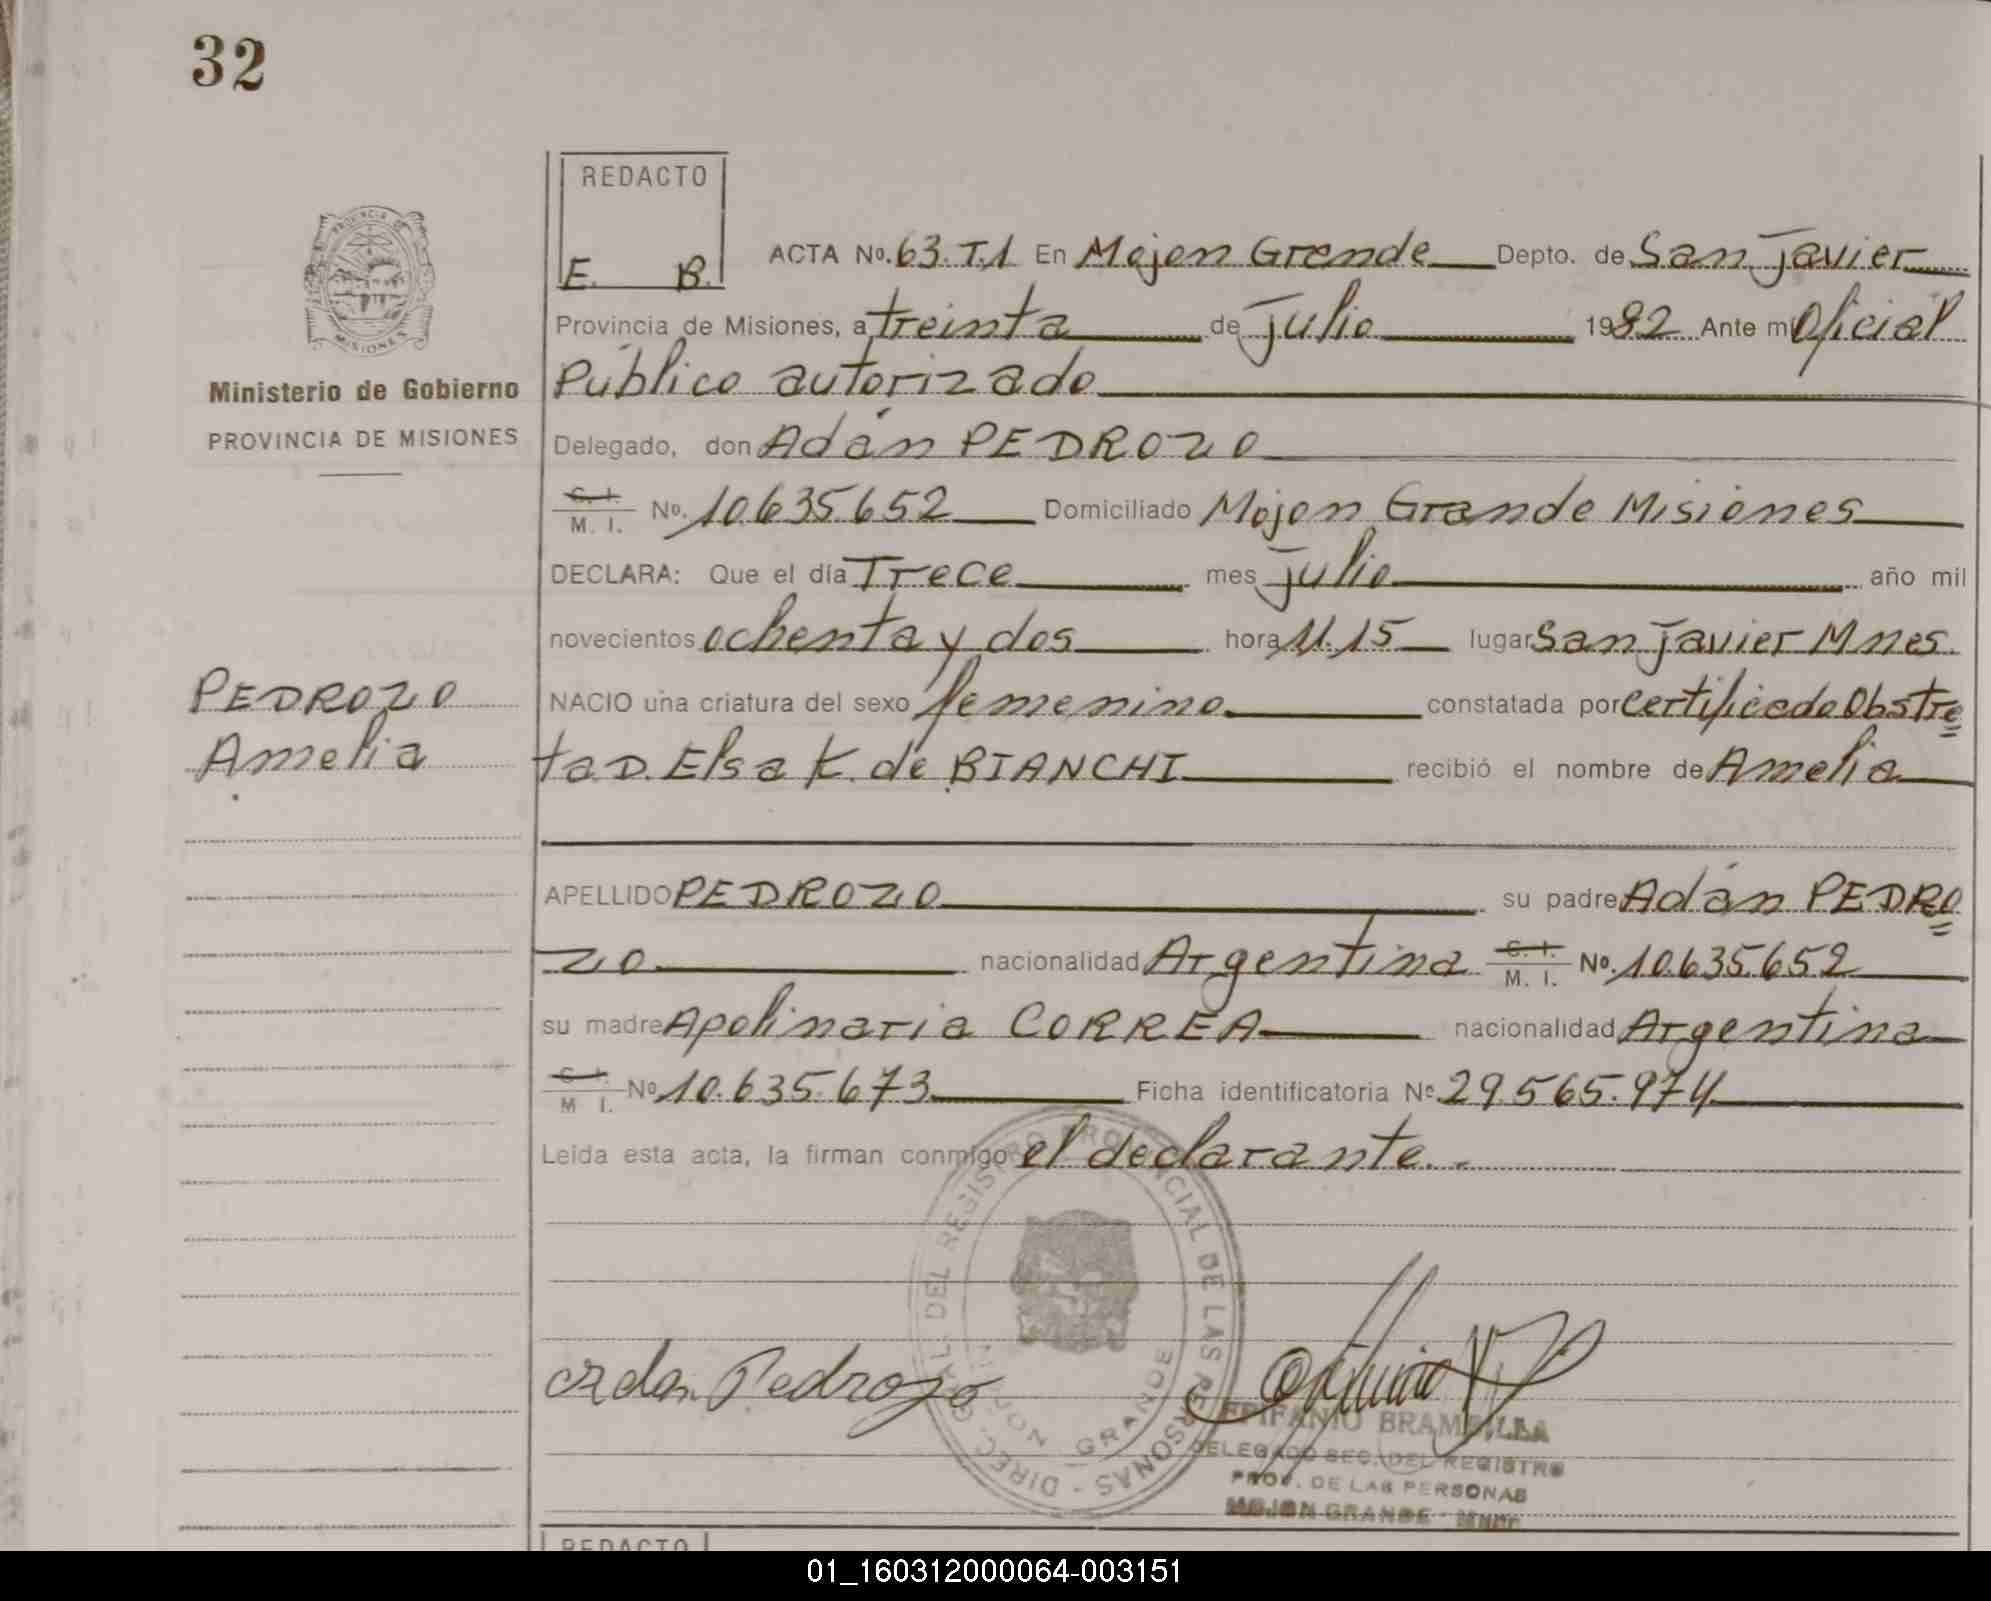 32
REDACTO
E. B.
PROVINCIA DE
MISIONES
Ministerio de Gobierno
PROVINCIA DE MISIONES
PEDROZO
Amelia
ACTA No. 63.T.1 En Mojon Grande Depto. de San Javier
Provincia de Misiones, a treinta de julio 1982 Ante mi Oficial
Público autorizado
Delegado, don Adán PEDROZO
C. I. M. I. No. 10.635.652 Domiciliado Mojon Grande Misiones
DECLARA: Que el día Trece mes julio año mil
novecientos ochenta y dos hora 11.15 lugar San Javier Mnes.
NACIO una criatura del sexo femenino constatada por certificado Obstre
ta D. Elsa K. de BIANCHI recibió el nombre de Amelia
APELLIDO PEDROZO su padre Adán PEDRO
ZO nacionalidad Argentina C. I. M. I. No. 10.635.652
su madre Apolinaria CORREA nacionalidad Argentina
C. I. M I. No 10.635.673 Ficha identificatoria No 29.565.974
Leída esta acta, la firman conmigo el declarante.-
DIREC. GRAL. DEL REGISTRO PROVINCIAL DE LAS PERSONAS -
MOJON GRANDE
Adan Pedrozo
EPIFANIO BRAMBILLA
DELEGADO SEC. DEL REGISTRO
PROV. DE LAS PERSONAS
MOJON GRANDE - Mnes
REDACTO
01_160312000064-003151